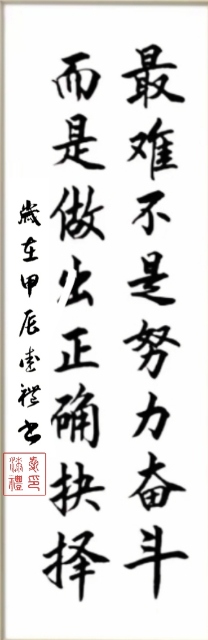 最难不是努力奋斗
而是做出正确抉择
岁在甲辰春礼书